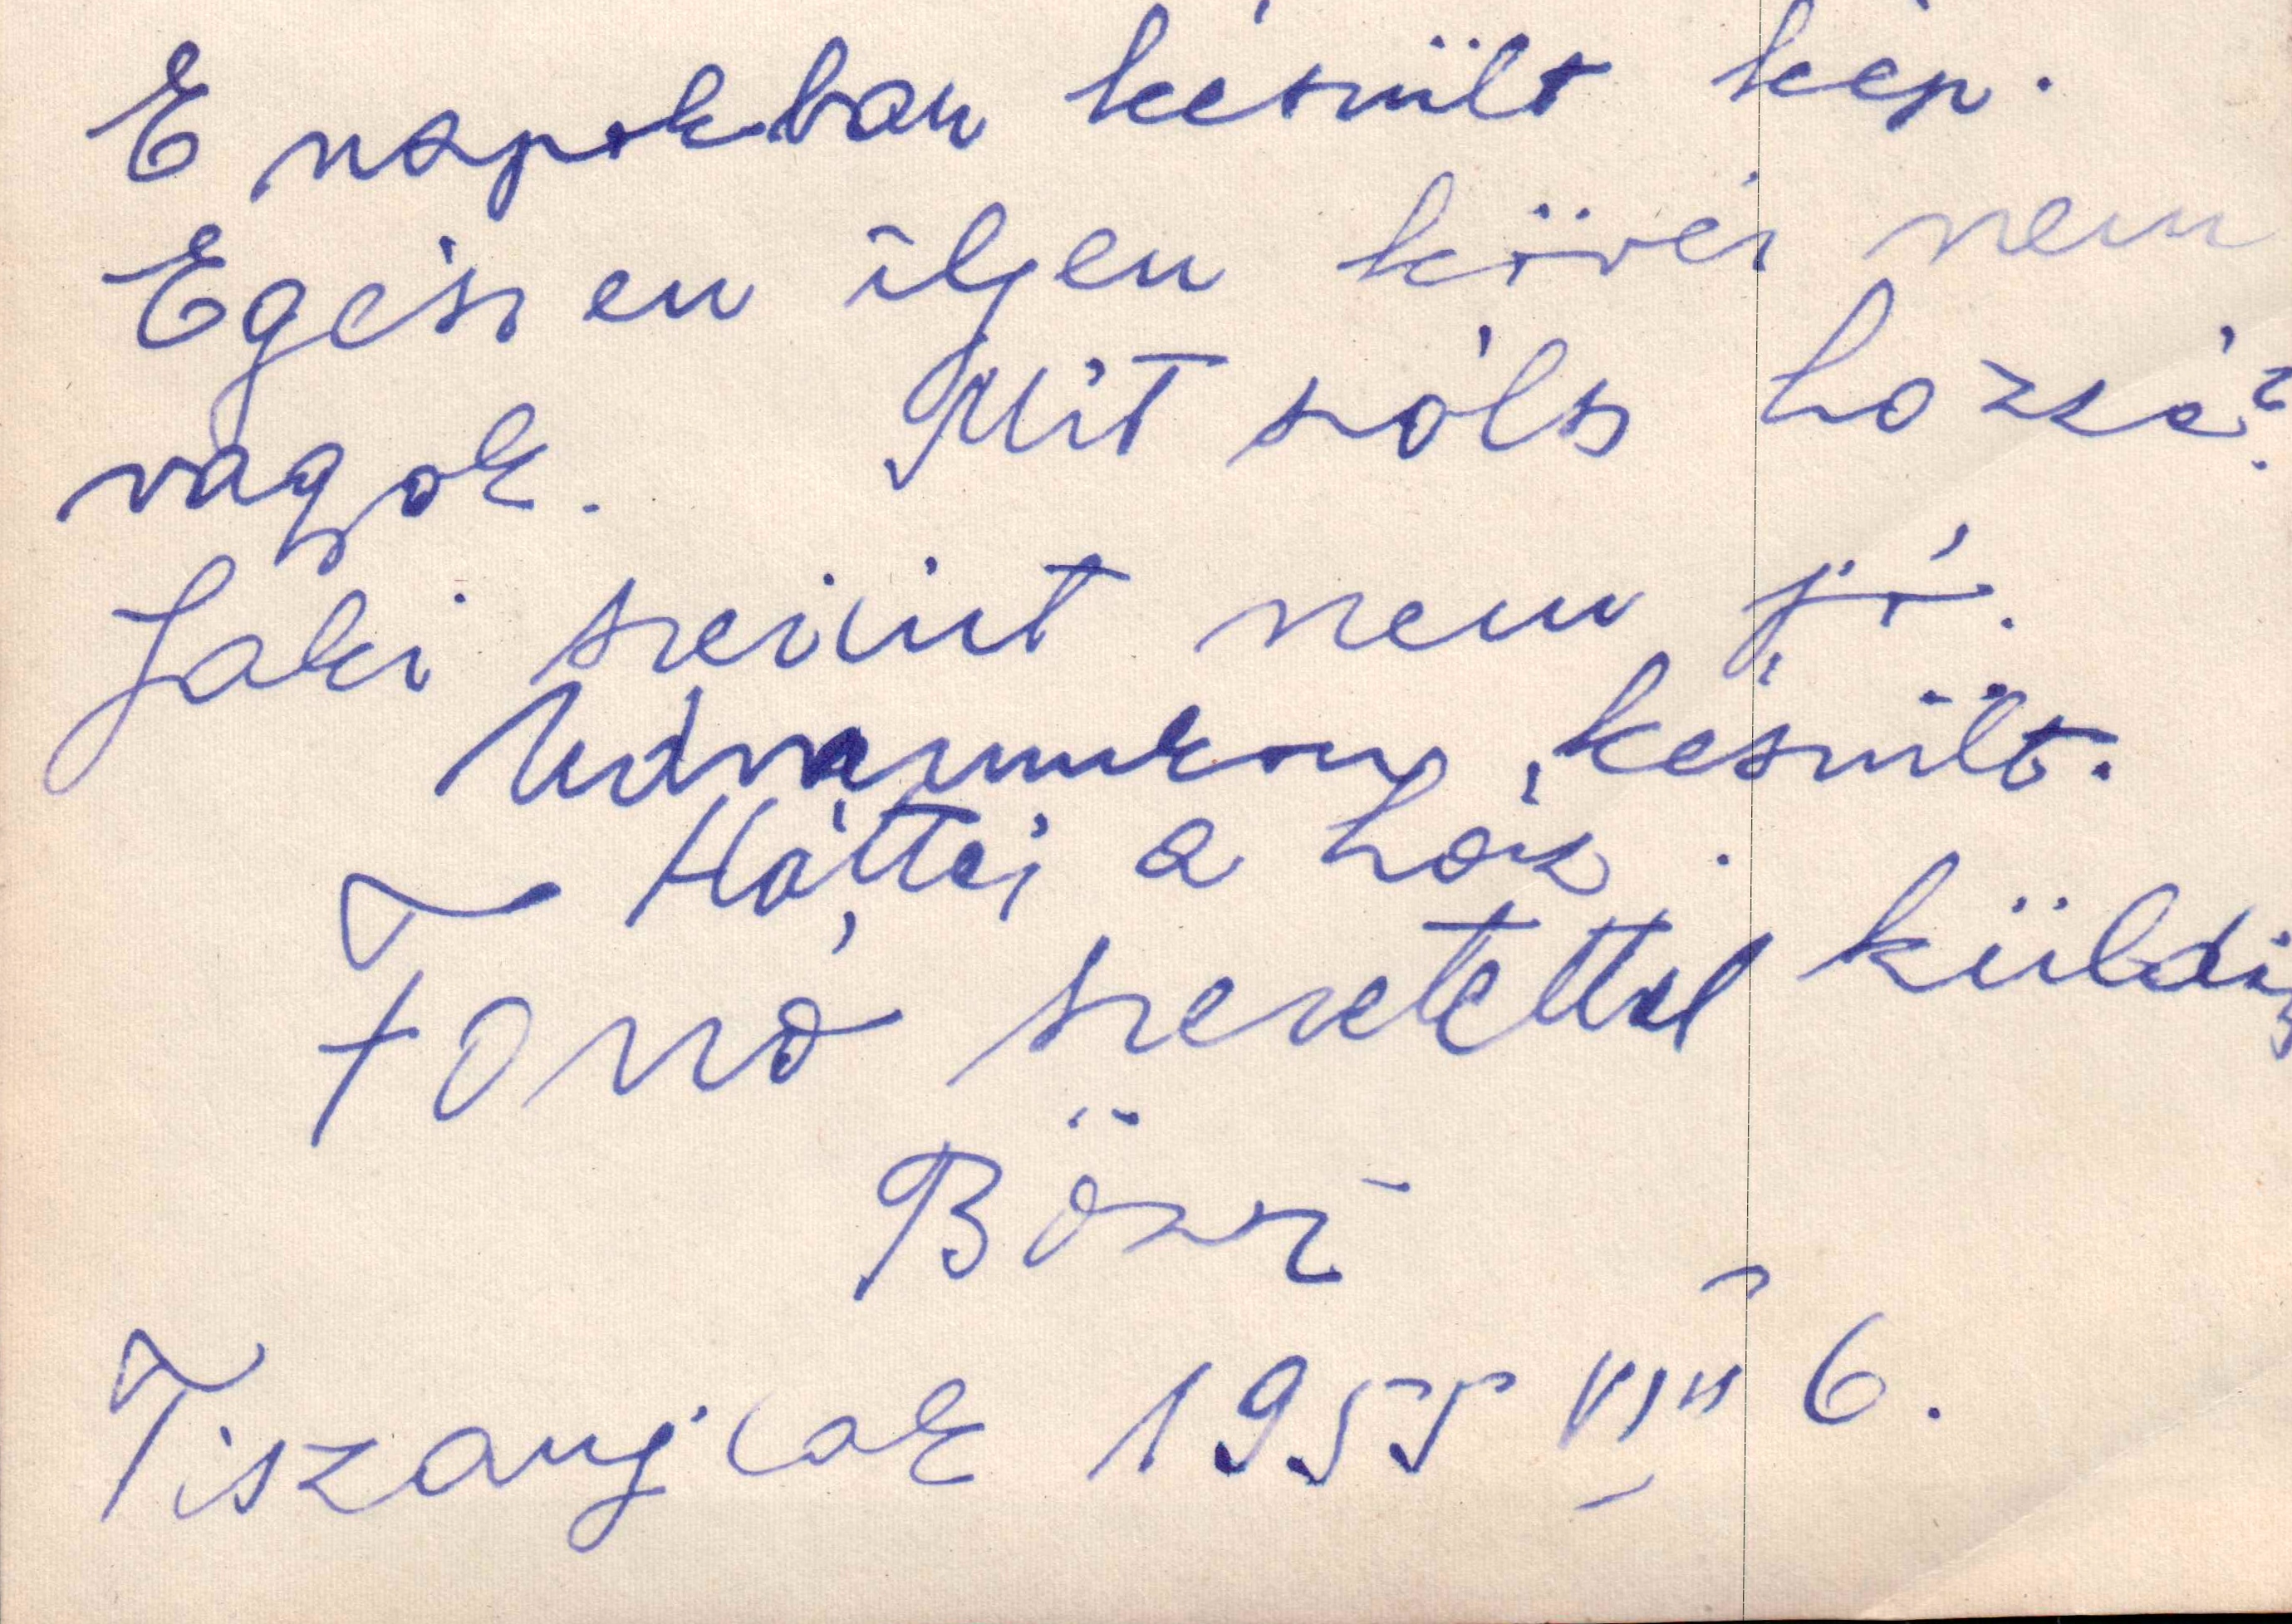 E napokban készült kép.
Egészen ilyen kövér nem
vagyok. Mit szólsz hozzá?
Laki szerint nem jó.
Udvarunkon készült.
Háttér a ház.
Forró szeretettel küldi
Bözsi
Tiszaujlak 1955 VIII 6.